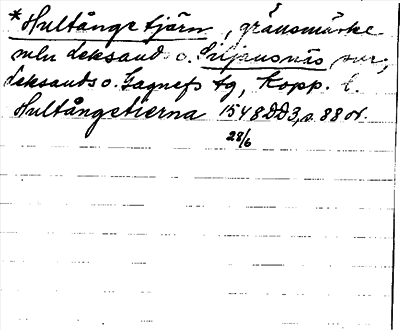 *Hultångetjärn, gränsmärke
mln Leksands o. Siljansnäs snr,
Leksands o. Gagnefs tg, Kopp. l.
Hultångetierna 1548 DD3, s. 88 or.
28/6